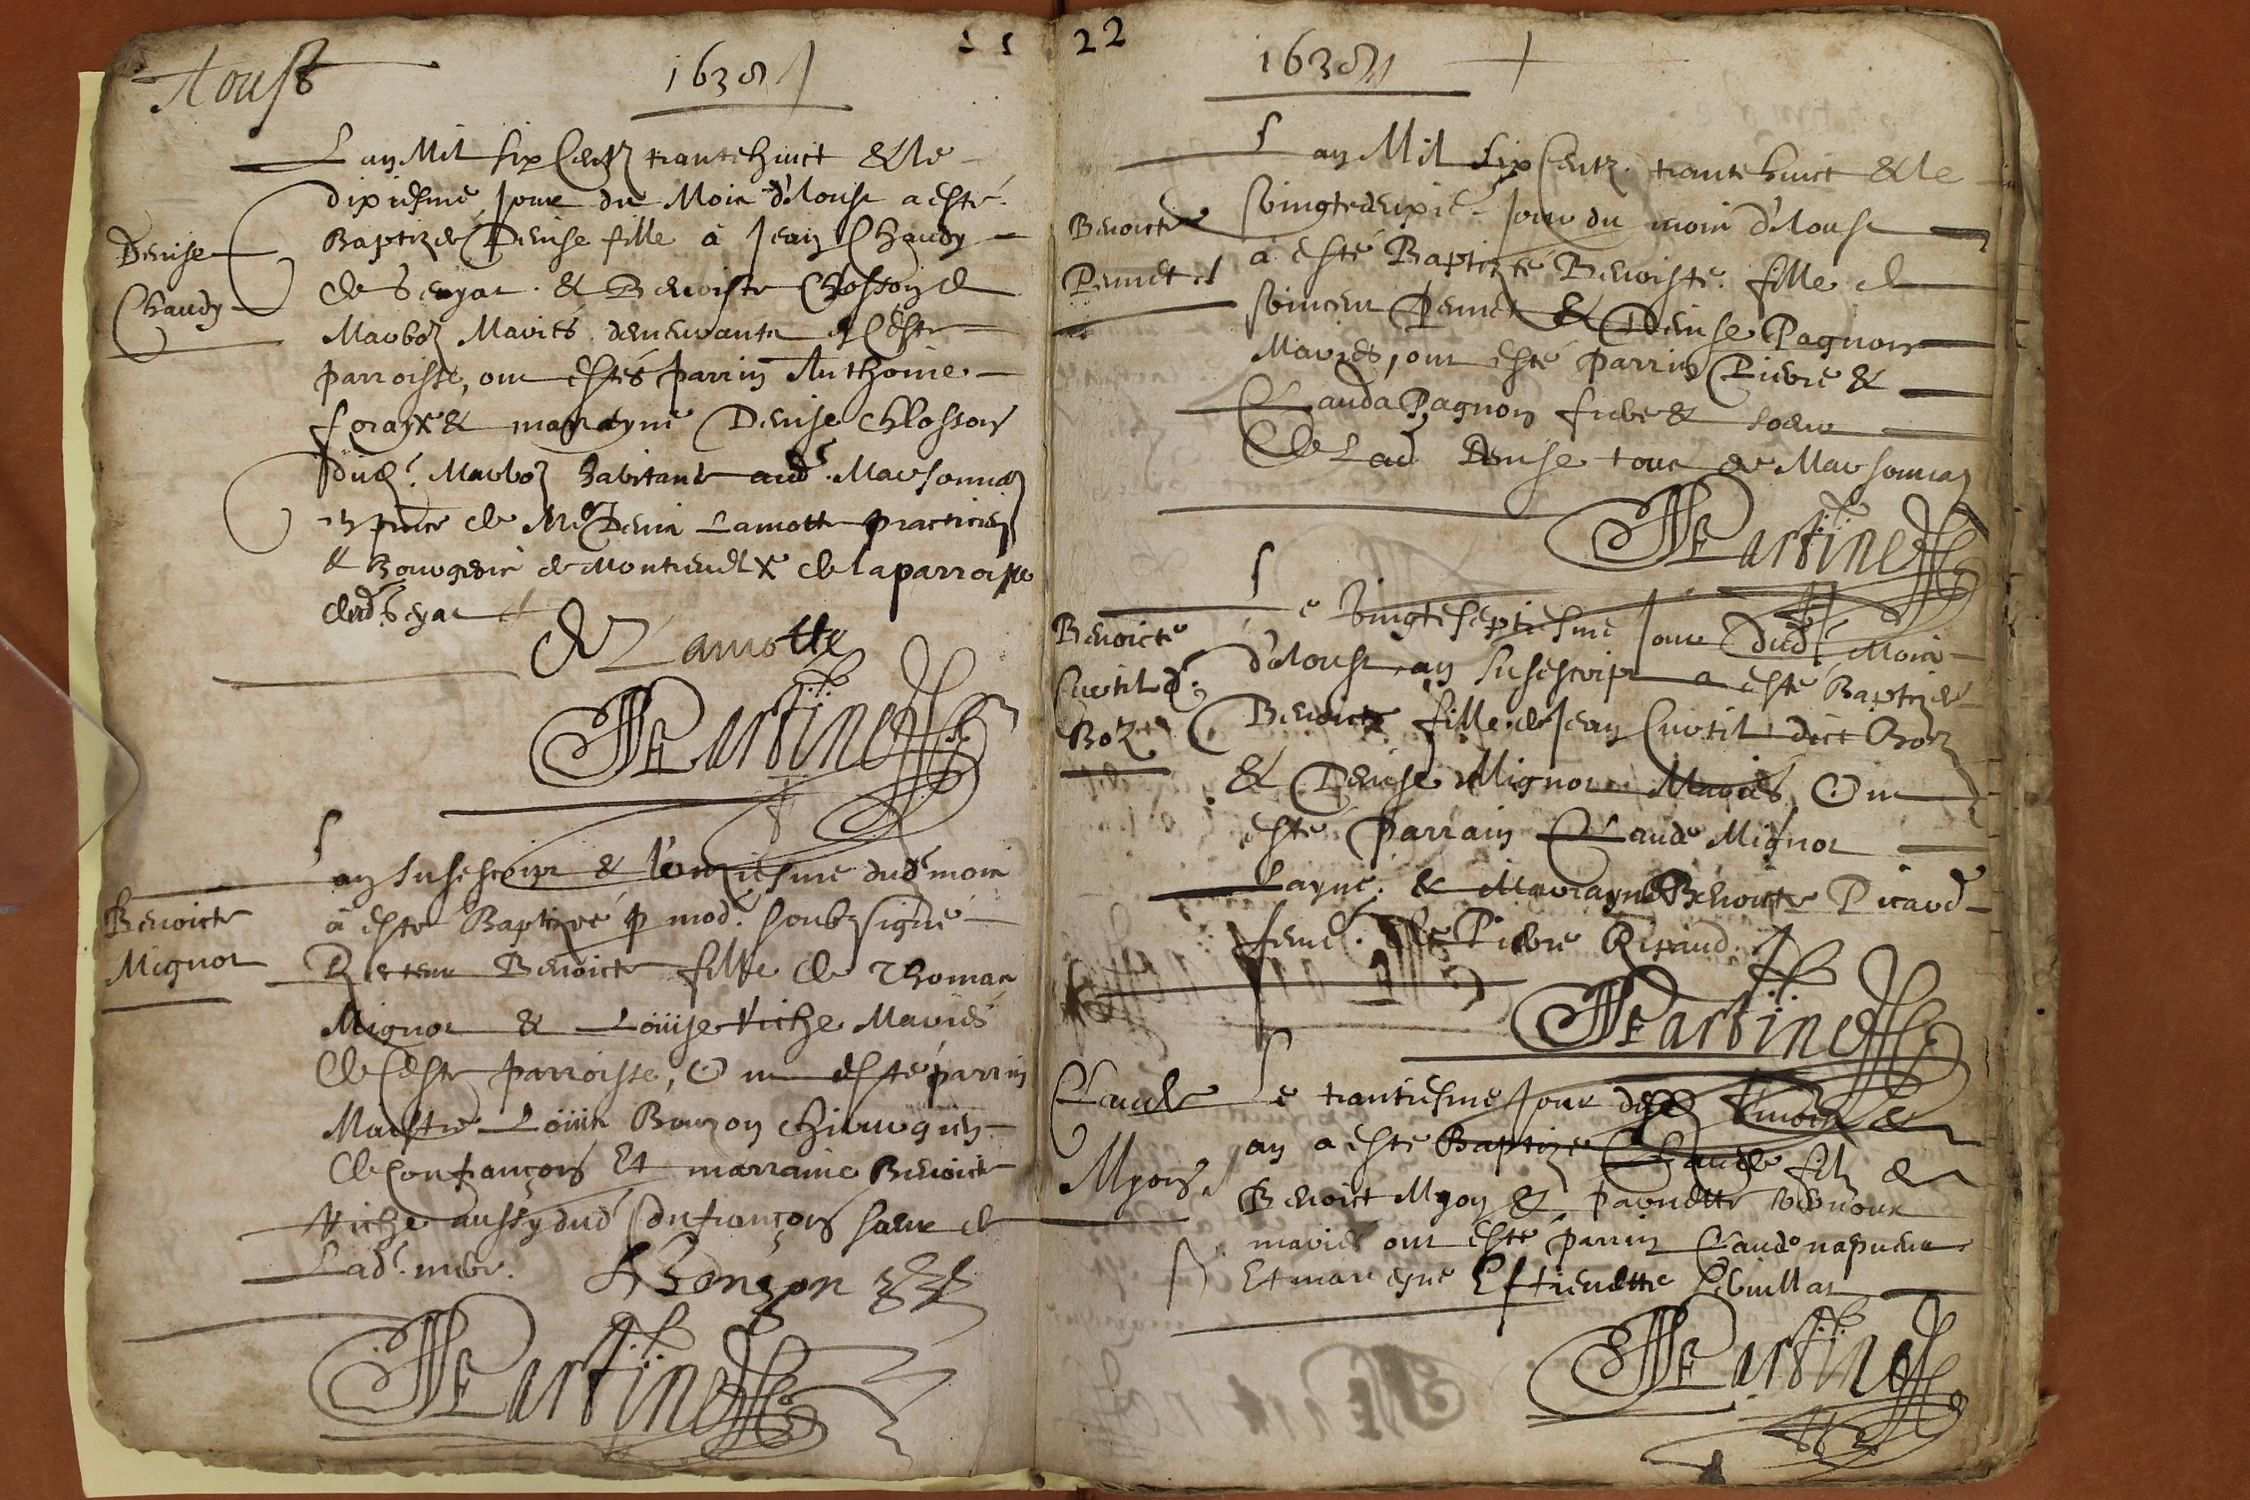 Aoust
1638
Lan Mil six Centz trante huict & le
dixiesme Jour du Mois d'Aoust a esté
Denise
Chaudy
Baptizée Denise fille à Jean Chaudy
de & Benoiste Chosson de
Marboz Mariés demeurantz en ceste
parroisse, ont estés parrin Anthoine
& marrayne Denise Chosson
dud. Marboz habitantz aud. Marsonnaz
en pnce de Me Denis Lamotte practicien
& bourgeois de de la parroisse
dud.
D Lamotte
Martinet
Benoicte
Mignot
Lan susescript & l'onziesme dud mois
à esté Baptizée p mod. soubzsigné
Benoicte fille de Thomas
Mignot & Louise Viche Mariés
de ceste parroisse, Ont esté parrin
Maistre Louis Bonzon chirurgien
de Confrançois Et marraine Benoicte
Viche aussy dud Confrançois soeur de
Lad. mere. Bonzon
Martinet
22
1638
Lan Mil six Centz trante huict & le
Benoicte
Pennet
vingtdeuxie Jour du mois d'Aoust
à esté Baptizée Benoiste fille de
Vincent Pennet & Denise Pagnon
Mariés, ont esté parrin Pierre &
Clauda Pagnon frere & soeur
de Lad Denise tous de Marsonnaz
Martinet
Benoicte
Curtil d.
Boz
Le vingtseptiesme Jour dud. Mois
d'Aoust an susescript a esté Baptizée
Benoicte fille de Jean Curtil dict Boz
& Denise Mignot Mariés Ont
esté parrain Claude Mignot
Layné & Marrayne Benoicte Picaud
feme. de Pierre
Martinet
Claude
Myon
Le trantiesme Jour desd mois &
an a esté Baptizé Claude filz de
Benoict Myon & Parnette
mariés ont esté parrin Claude
Et mareyne Estiendtte
Martinet